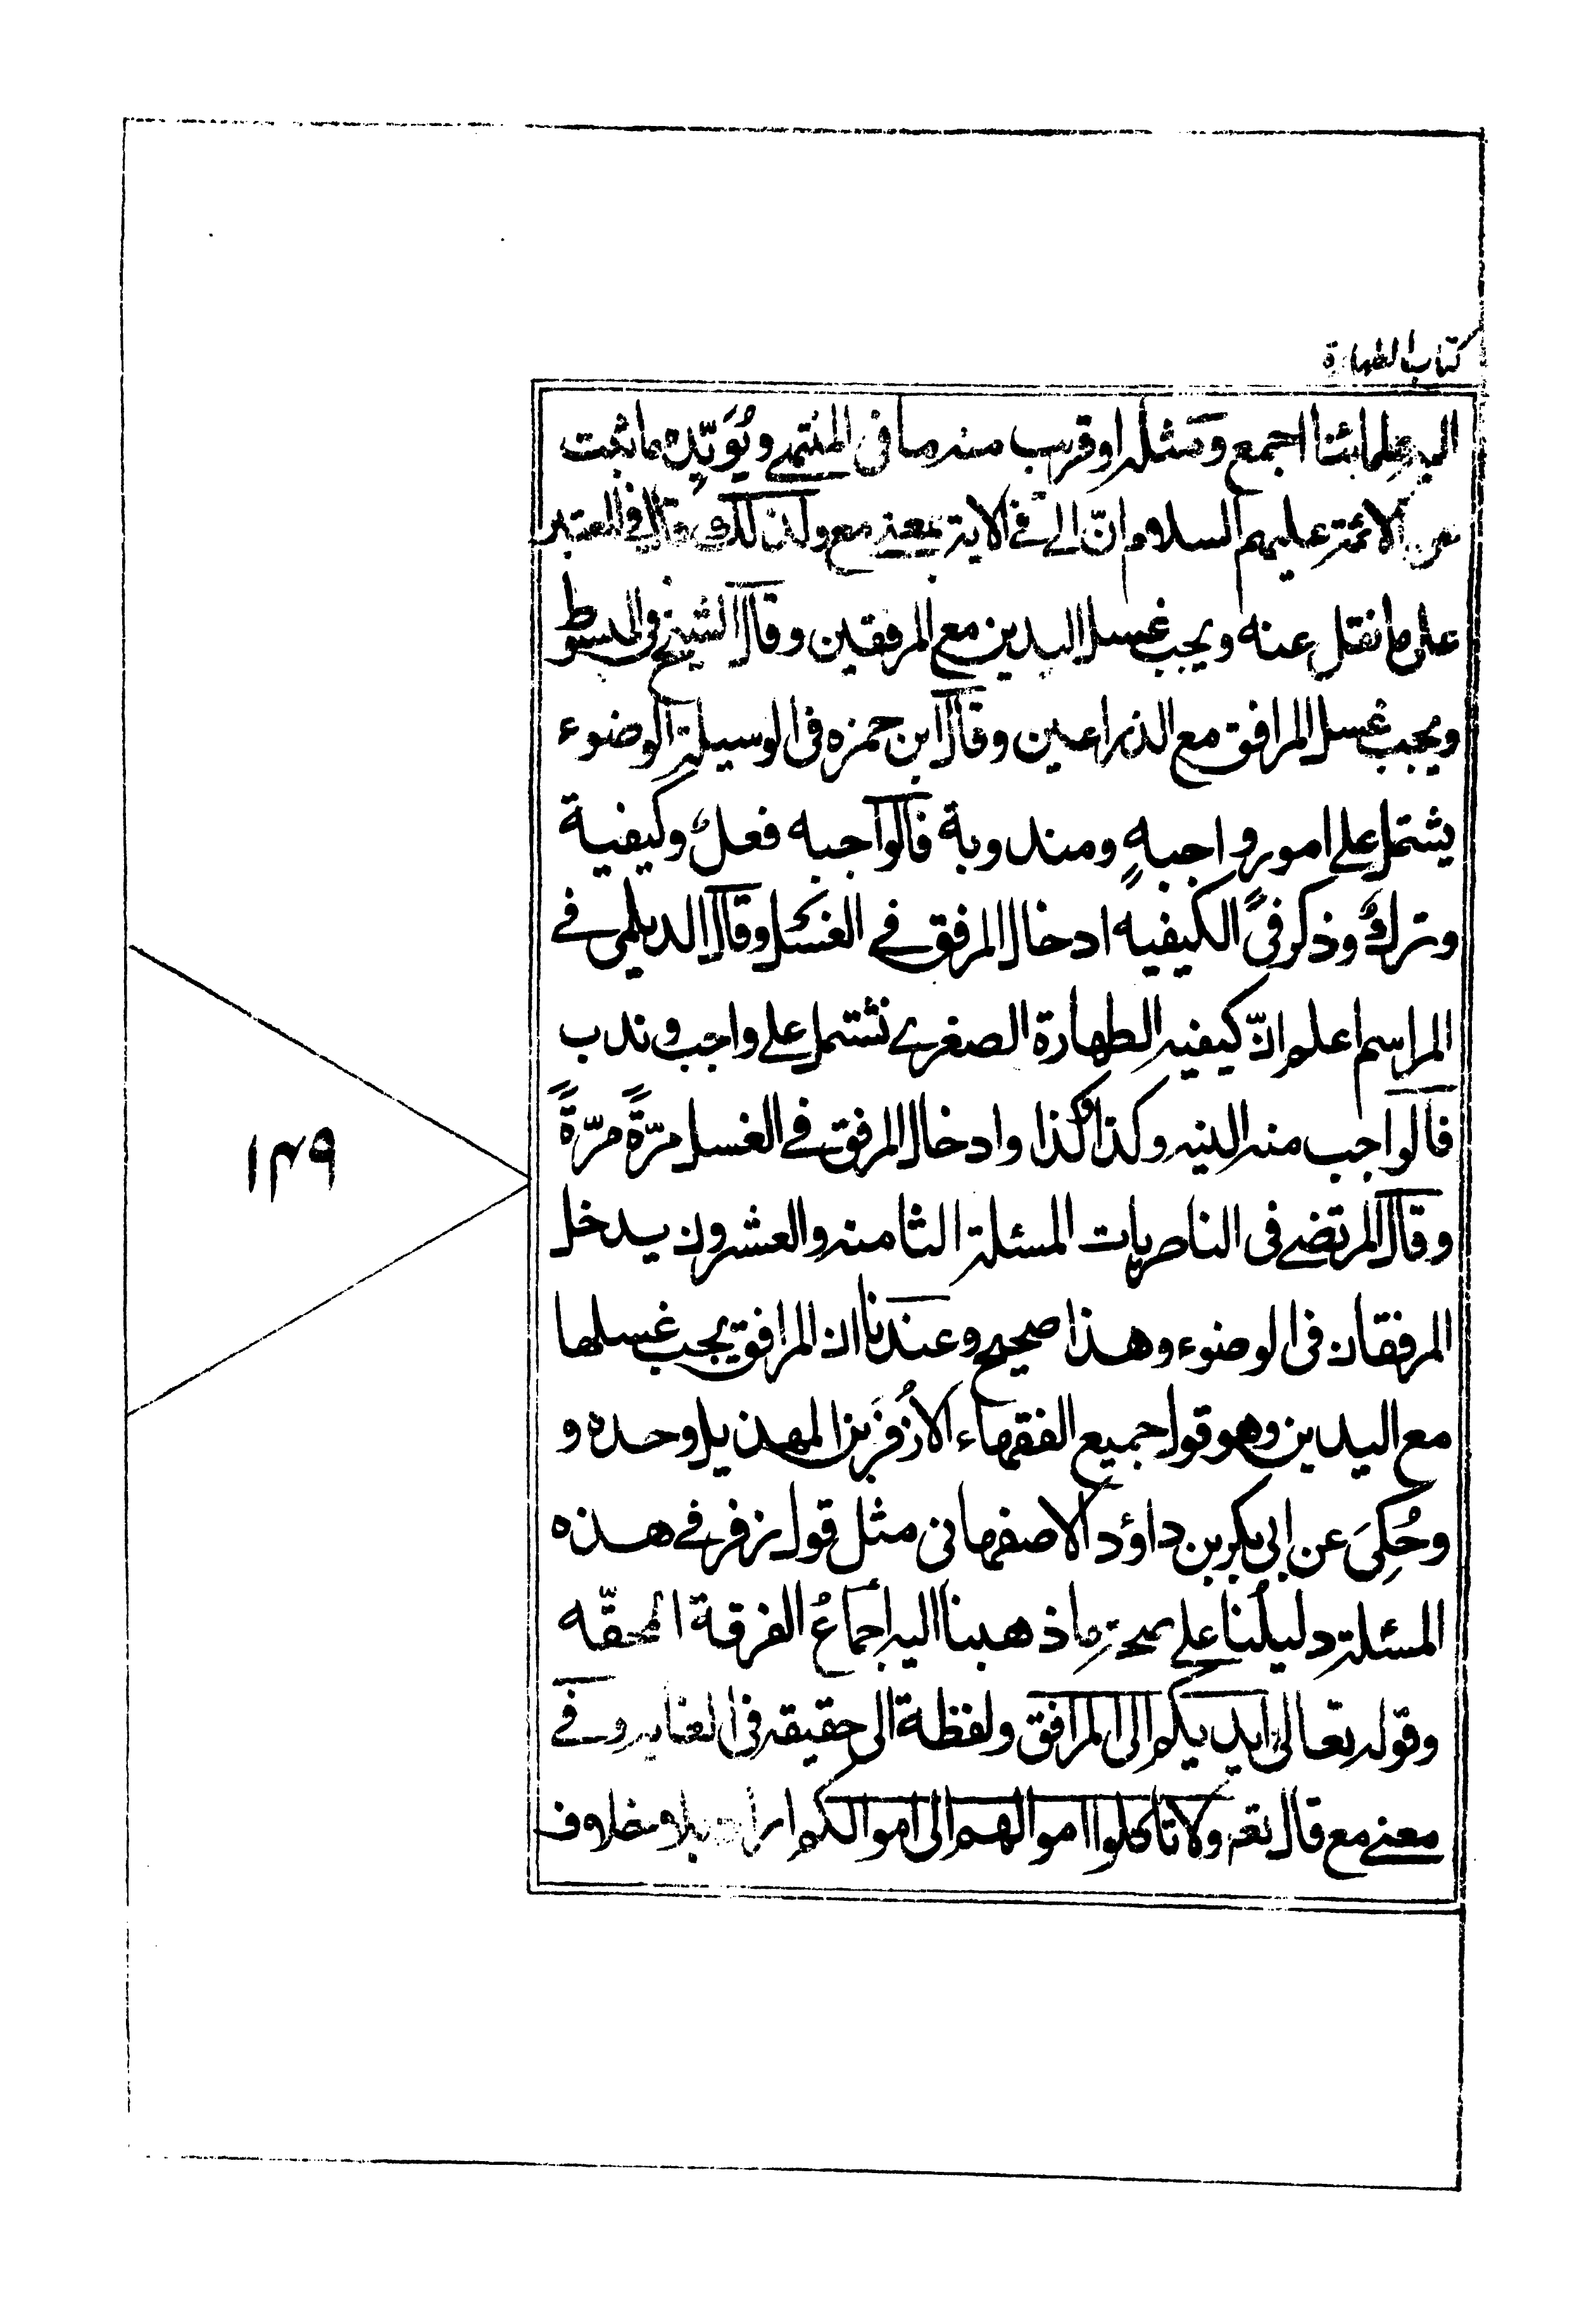 كتاب الطهارة
اليه علمائنا اجمع ومثله او قريب منه ما فى المنتهى ويُؤيّده ما ثبت
عن الائمة عليهم السلام انّ الى فى الاية بمعنى مع ولذلك قال فى المعتبر
على ما نقل عنه ويجب غسل اليدين مع المرفقين وقال الشيخ فى المبسوط
ويجب غسل المرافق مع الذراعين وقال ابن حمزه فى الوسيلة الوضوء
يشتمل على امور واجبهٍ ومندوبة فالواجبه فعلٌ وكيفية
وتركٌ وذكر فى الكيفيه ادخال المرفق فى الغسل وقال الديلمى فى
المراسم اعلم انّ كيفيه الطهارة الصغرى تشتمل على واجب وندب
فالواجب منه النيه وكذا وكذا وادخال المرفق فى الغسل مرّةً مرّةً
وقال المرتضى فى الناصريات المسئلة الثامنه والعشرون يدخل
المرفقان فى الوضوء وهذا صحيح وعندنا ان المرافق يجب غسلها
مع اليدين وهو قول جميع الفقهاء الا زُفَر بن الهذيل وحده و
وحُكِىَ عن ابى بكر بن داؤد الاصفهانى مثل قول زفر فى هذه
المسئلة دليلُنا على صحة ما ذهبنا اليه اجماعُ الفرقة المحقّه
وقوله تعالى ايديكم الى المرافق ولفظة الى حقيقه فى الغايه وفى
معنى مع قال تعہ ولا تاكلوا اموالهم الى اموالكم اراد بلا خلاف
١٣٩